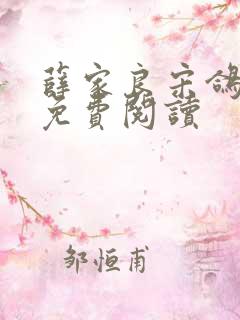 薛家良宋鴿
免費閱讀
邹恒甫